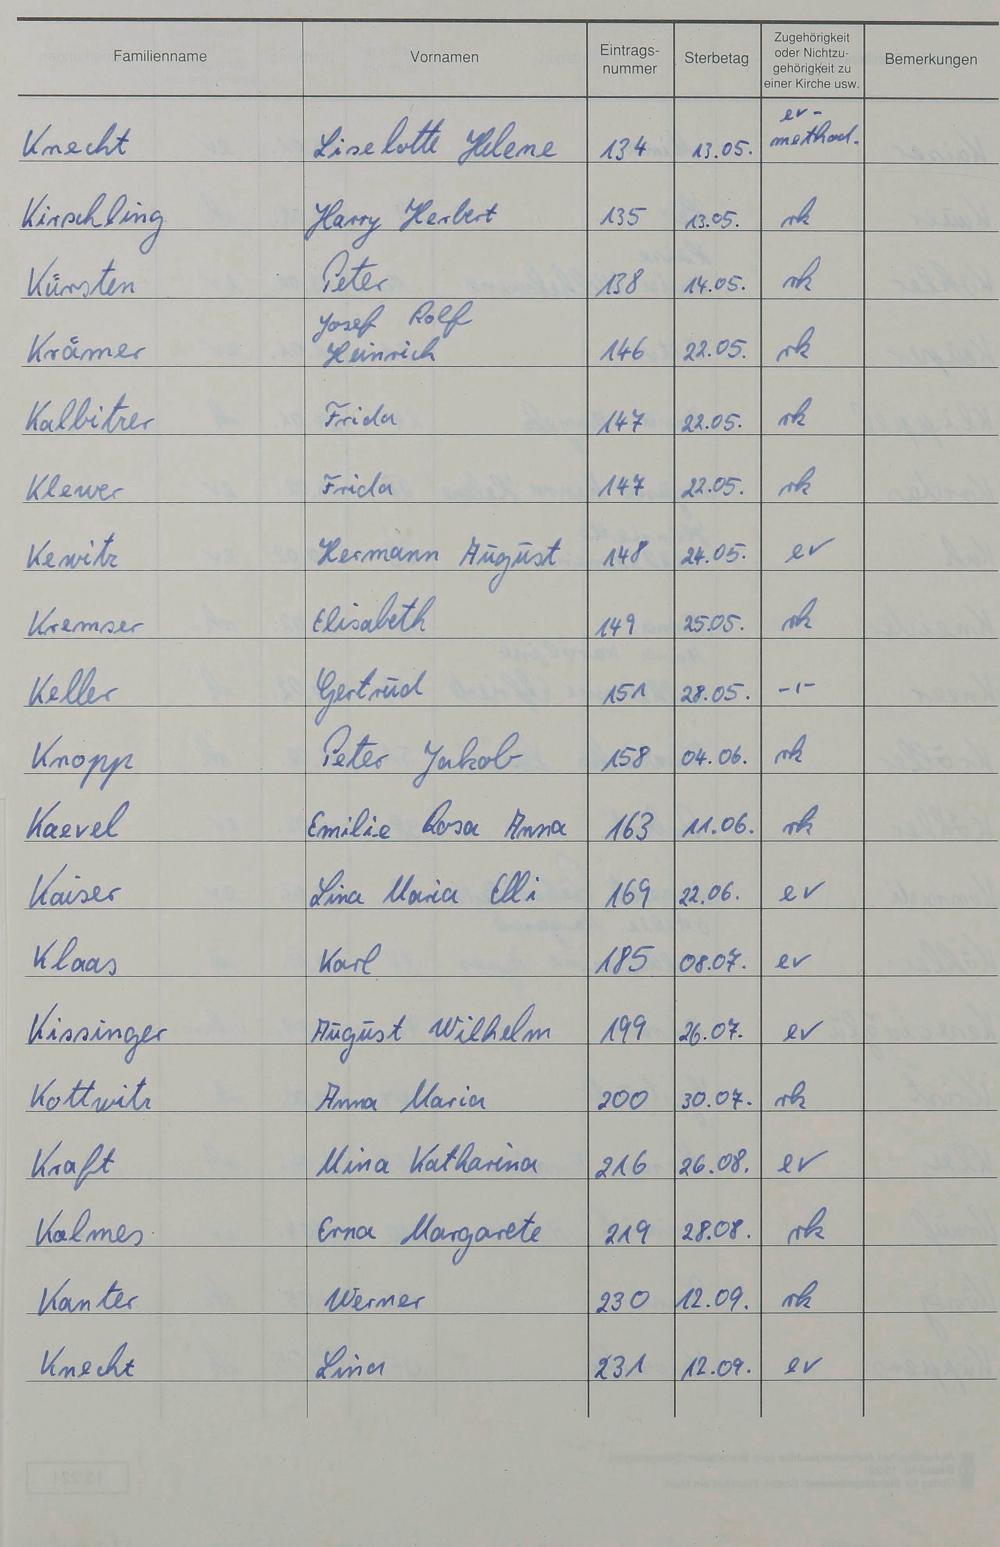 Familienname Vornamen Eintrags-nummer Sterbetag Zugehörigkeit oder Nichtzu-gehörigkeit zu einer Kirche usw. Bemerkungen
Knecht Liselotte Helene 134 13.05. ev-method.
Kirschling Harry Herbert 135 13.05. rk
Kürsten Peter 138 14.05. rk
Krämer Josef Rolf Heinrich 146 22.05. rk
Kalbitzer Frida 147 22.05. rk
Klewer Frida 147 22.05. rk
Kewitz Hermann August 148 24.05. ev
Kremser Elisabeth 149 25.05. rk
Keller Gertrud 151 28.05. -"-
Knopp Peter Jakob 158 04.06. rk
Kaevel Emilie Rosa Anna 163 11.06. rk
Kaiser Lina Maria Elli 169 22.06. ev
Klaas Karl 185 08.07. ev
Kissinger August Wilhelm 199 26.07. ev
Kottwitz Anna Maria 200 30.07. rk
Kraft Mina Katharina 216 26.08. ev
Kalmes Erna Margarete 219 28.08. rk
Kanter Werner 230 12.09. rk
Knecht Lina 231 12.09. ev